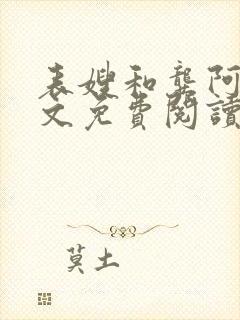 表嫂和龔阿
文免費閱讀
莫土